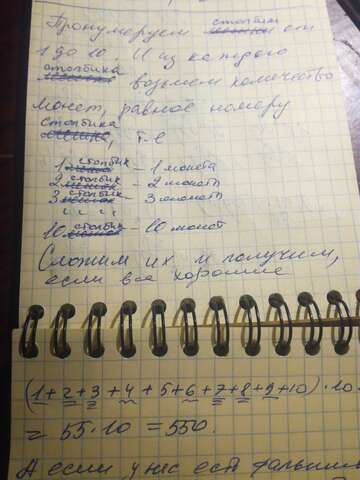 Пронумеруем столбики от
1 до 10. И из каждого
столбика возьмем количество
монет, равное номеру
столбика, т-е
1 столбик - 1 монета
2 столбик - 2 монеты
3 столбик - 3 монеты
10 столбик - 10 монет
Сложим их и получим,
если все хорошие
(1+2+3+4+5+6+7+8+9+10)·10
= 55·10 = 550.
А если у нас есть фальшив